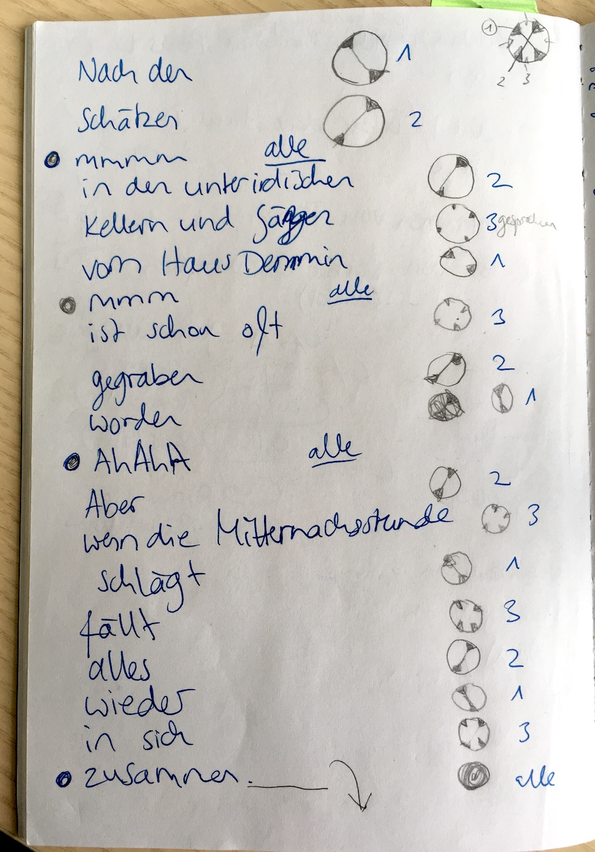 1
2 3
Nach den 1
Schätzen 2
mmmm alle
in den unterirdischen 2
Kellern und Gängen 3 gesprochen
vom Haus Demmin 1
mmm alle
ist schon oft 3
gegraben 2
worden 1
AhAhA alle
Aber 2
wenn die Mitternachsstunde 3
schlägt 1
fällt 3
alles 2
wieder 1
in sich 3
zusammen. alle